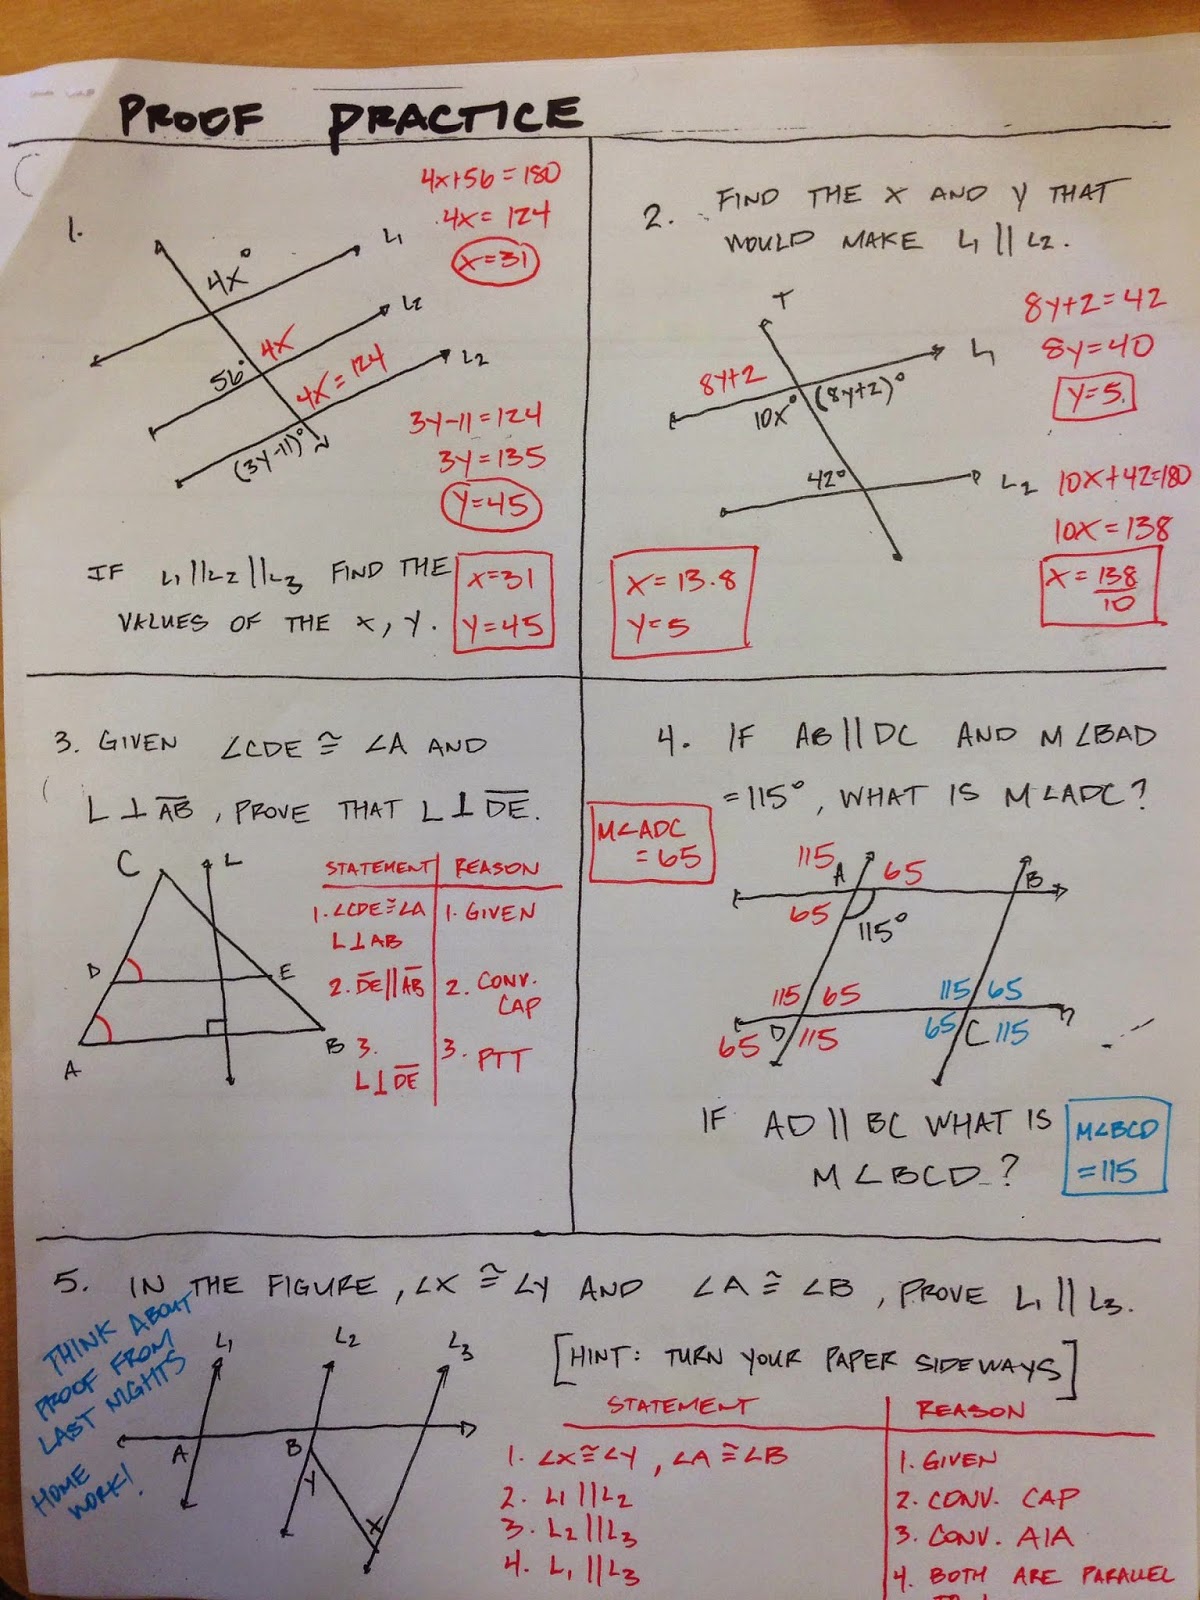 PROOF PRACTICE
1.
4x+56=180
4x=124
x=31
L1
4x°
L2
4x
56°
L2
4x=124
(3y-11)°
3y-11=124
3y=135
y=45
IF L1||L2||L3 FIND THE
VALUES OF THE x, y.
x=31
y=45
2. FIND THE x AND y THAT
WOULD MAKE L1||L2.
T
8y+2=42
8y=40
y=5.
L1
8y+2
10x° (8y+2)°
42°
L2
10x+42=180
10x=138
x=138/10
x=13.8
y=5
3. GIVEN ∠CDE ≅ ∠A AND
L⊥AB, PROVE THAT L⊥DE.
C L
D E
A B
STATEMENT REASON
1. ∠CDE≅∠A 1. GIVEN
L⊥AB
2. DE||AB 2. CONV.
CAP
3. 3. PTT
L⊥DE
4. IF AB||DC AND M∠BAD
=115°, WHAT IS M∠ADC?
M∠ADC
=65
115 A 65 B
65 115°
115 65 115 65
65 D 115 65 C 115
IF AD||BC WHAT IS
M∠BCD?
M∠BCD
=115
5. IN THE FIGURE, ∠X≅∠Y AND ∠A≅∠B, PROVE L1||L3.
THINK ABOUT
PROOF FROM
LAST NIGHTS
HOME
WORK!
L1 L2 L3
A B
Y
X
[HINT: TURN YOUR PAPER SIDEWAYS]
STATEMENT REASON
1. ∠X≅∠Y, ∠A≅∠B 1. GIVEN
2. L1||L2 2. CONV. CAP
3. L2||L3 3. CONV. AIA
4. L1||L3 4. BOTH ARE PARALLEL